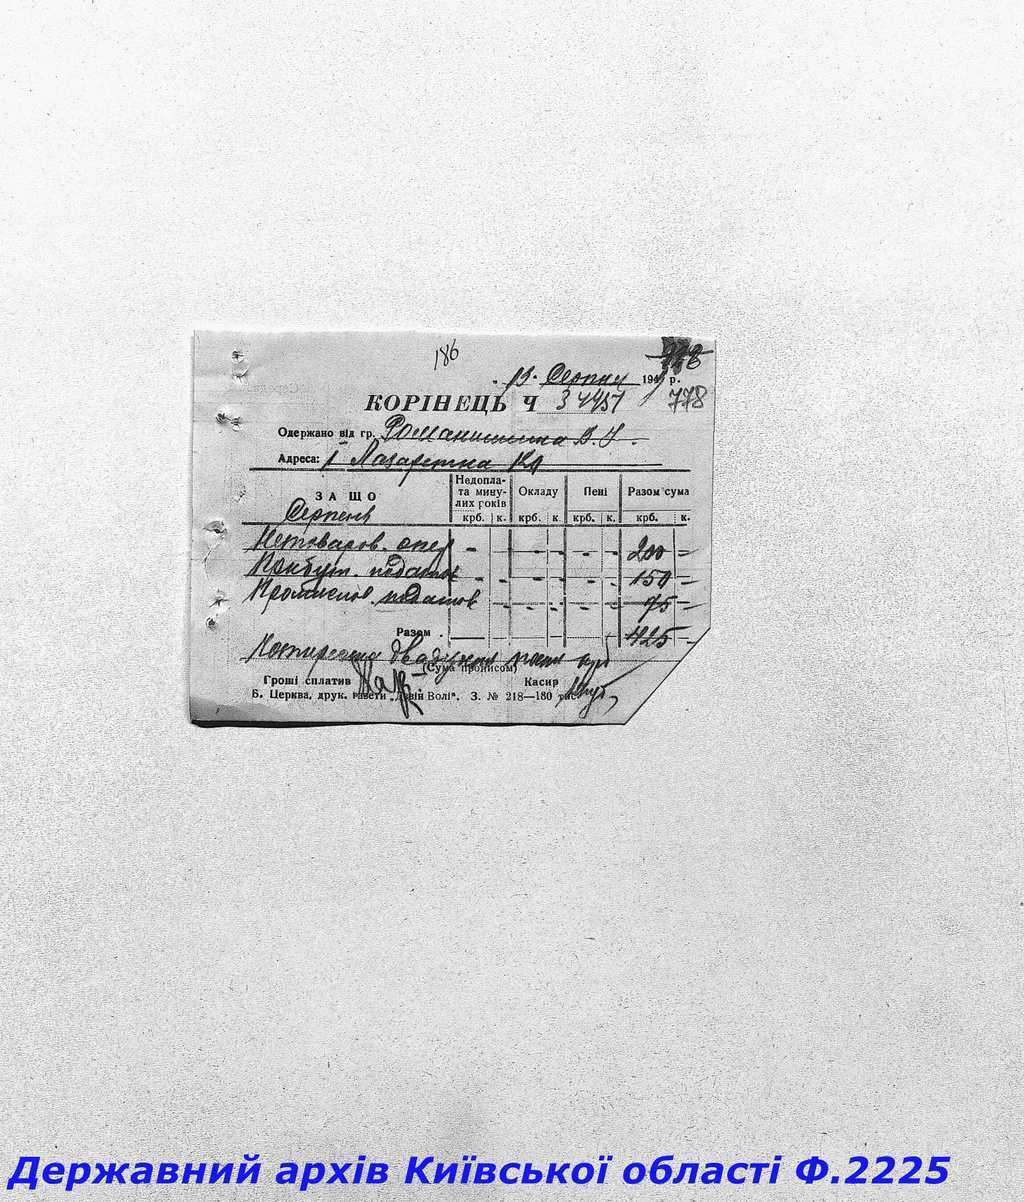 186
778
19. Серпня 194 р.
КОРІНЕЦЬ Ч 34451 778
Одержано від гр.
Адреса: Лазаретна
ЗА ЩО Недоплата минулих років Окладу Пені Разом сума
крб. к. крб. к. крб. к. крб. к.
Серпень
Нетоваров. опер - - - - - 200 =
Прибут. податок - - - - - 150 =
Промислов. податок - - - - - 75 =
Разом . 425 -
Чотириста двадцять крб
(Сума прописом)
Гроші сплатив Касир
Б. Церква, друк. газети „Дзвін Волі". З. № 218—180 тис.
Державний архів Київської області Ф.2225